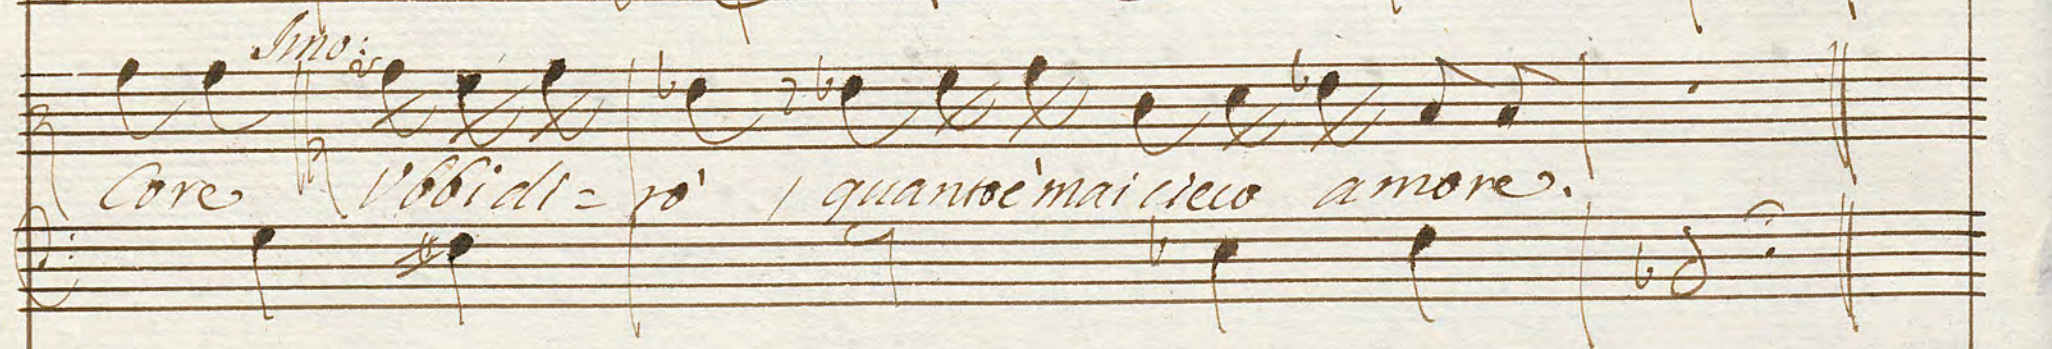 Core Vbbidi=rò quanto è mai cieco amore.